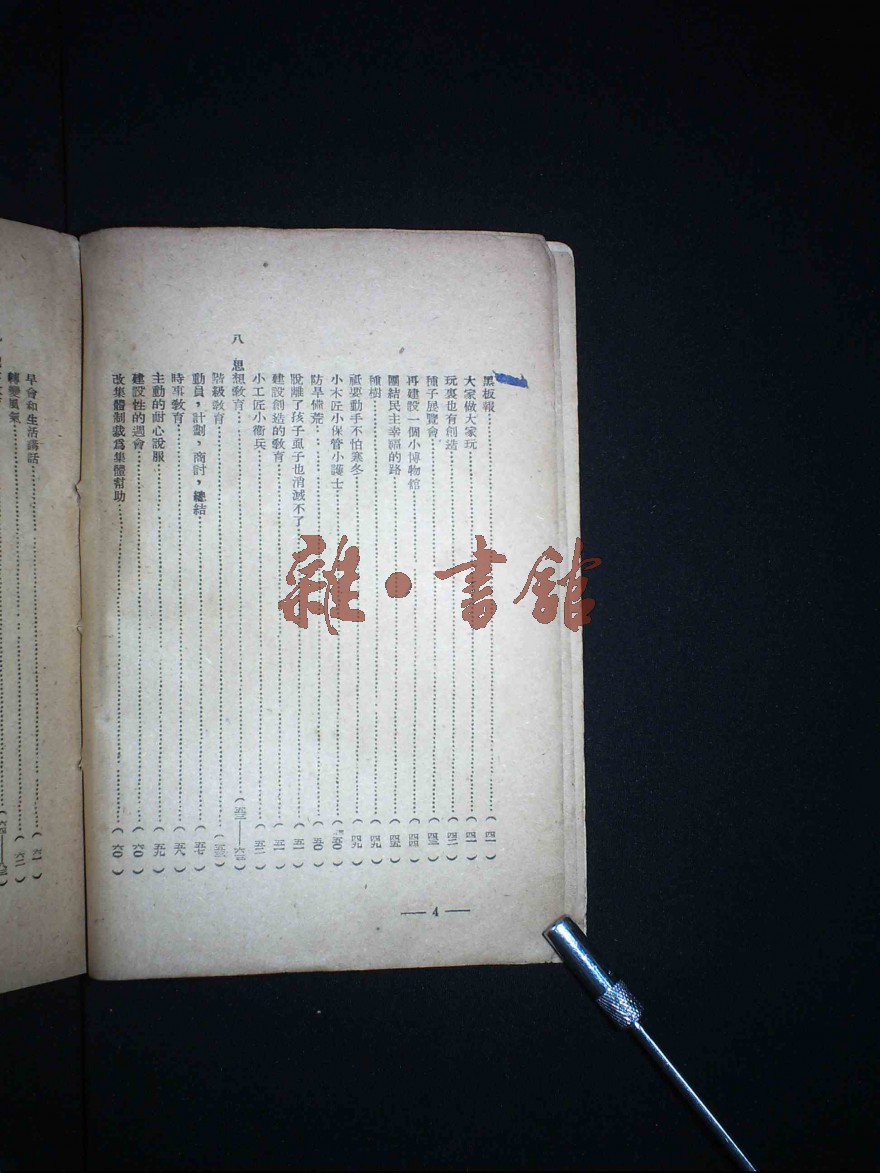 黑板報⋯⋯(四一)
大家做大家玩⋯⋯(四一)
玩裏也有創造⋯⋯(四二)
種子展覽會⋯⋯(四三)
再建設一個小博物館⋯⋯(四四)
團結民主幸福的路⋯⋯(四五)
種樹⋯⋯(四九)
祗要動手不怕寒冬⋯⋯(四九)
小木匠小保管小護士⋯⋯(五〇)
防旱備荒⋯⋯(五〇)
脫離了孩子虱子也消滅不了⋯⋯(五一)
建設創造的教育⋯⋯(五一)
小工匠小衞兵⋯⋯(五二)
八 思想教育⋯⋯(五三——六三)
階級教育⋯⋯(五三)
動員,計劃,商討,總結⋯⋯(五七)
時事教育⋯⋯(五八)
主動的耐心說服⋯⋯(五九)
建設性的週會⋯⋯(六〇)
改集體制裁爲集體幫助⋯⋯(六〇)
— 4 —
早會和生活講話⋯⋯(六一)
轉變風氣⋯⋯(六二)
雜·書舘